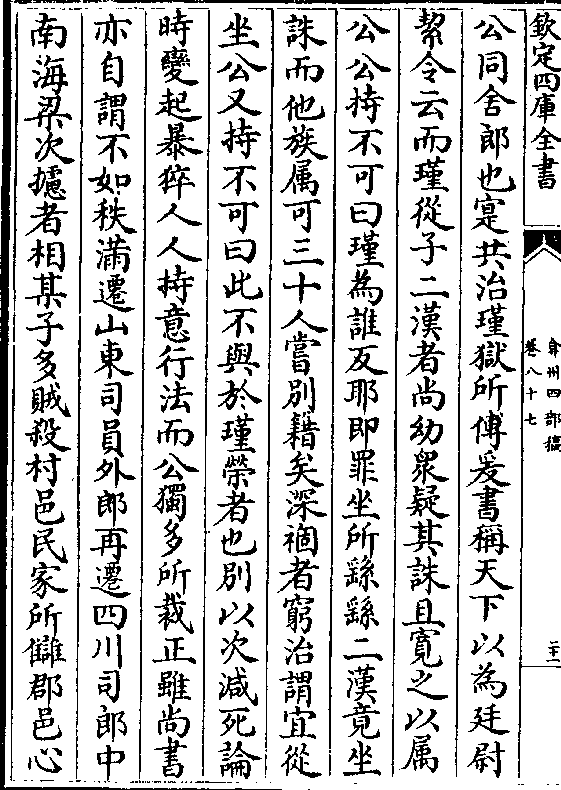 欽定四庫全書
弇州四部稿
卷八十七
二十一
公同舍郎也寔共治瑾獄所傅爰書稱天下以為廷尉
絜令云而瑾從子二漢者尚幼衆疑其誅且寛之以属
公公持不可曰瑾為誰反耶即罪坐所繇繇二漢竟坐
誅而他族属可三十人嘗別籍矣深祻者窮治謂宜從
坐公又持不可曰此不與於瑾榮者也別以次減死論
時變起暴猝人人持意行法而公獨多所裁正雖尚書
亦自謂不如秩滿遷山東司員外郎再遷四川司郎中
南海梁次攄者相某子多賊殺村邑民家所讎郡邑心